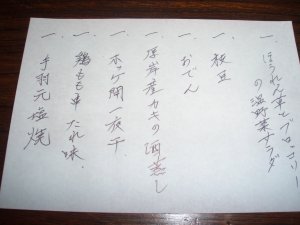 一、ほうれん草とブロッコリー
の温野菜サラダ
一、枝豆
一、おでん
一、厚岸産カキの酒蒸し
一、ホッケ開一夜干
一、鶏もも串 たれ味
一、手羽元塩焼